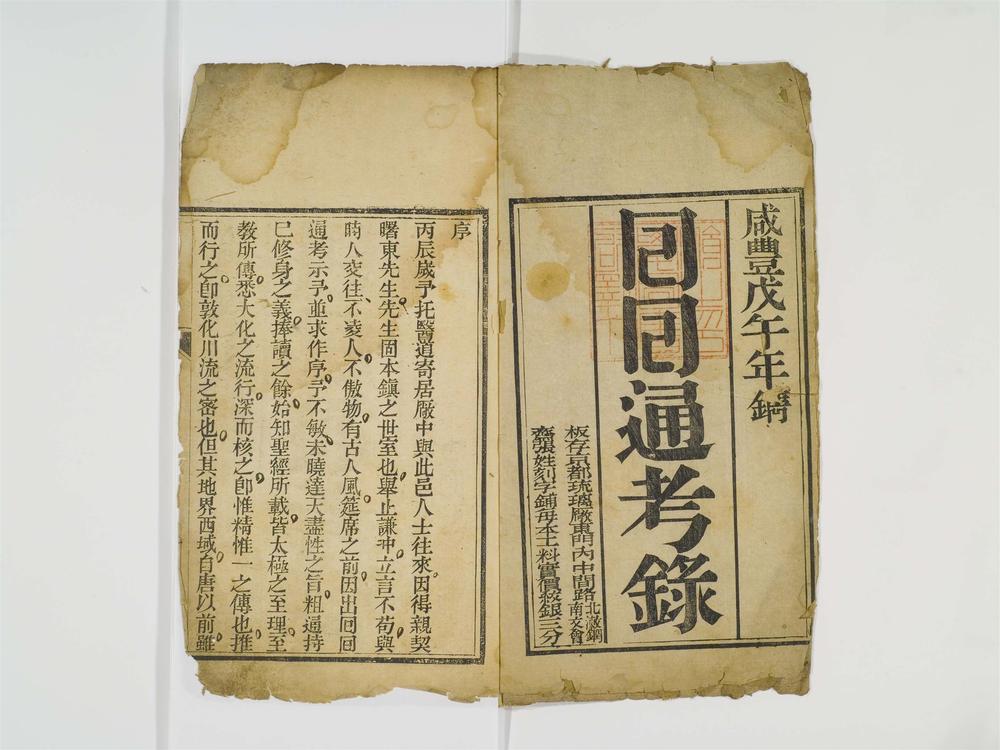 咸豐戊午年鐫
囘囘通考錄
板存京都琉璃廠東門內中間路北澂鋼南文會
齋張姓刻字鋪每本工料實價紋銀三分
序
丙辰歲予托醫道寄居廠中與此邑人士往來因得親契
曙東先生先生固本鎭之世室也舉止謙冲立言不苟與
時人交往不凌人不傲物有古人風筵席之前因出囘囘
通考示予並求作序予不敏未曉達天盡性之旨粗通持
己修身之義捧讀之餘始知聖經所載皆太極之至理至
敎所傳悉大化之流行深而核之卽惟精惟一之傳也推
而行之卽敦化川流之密也但其地界西域自唐以前雖